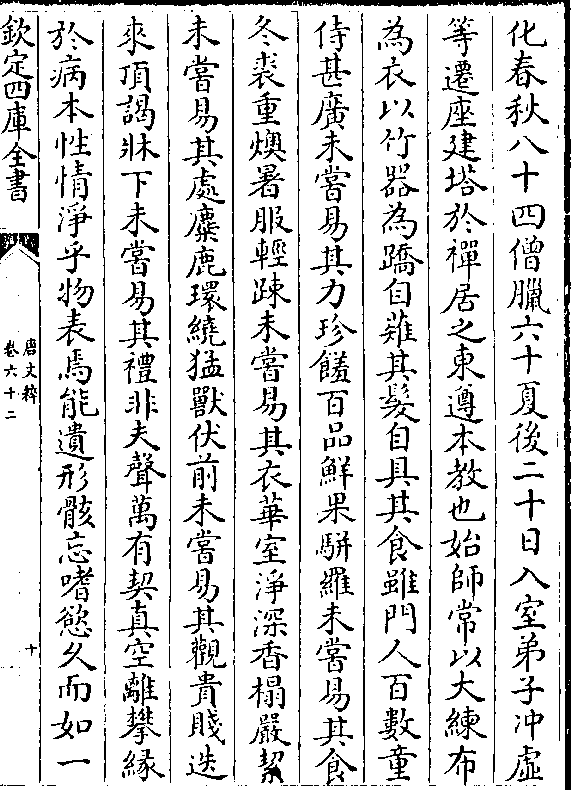 化春秋八十四僧臘六十夏後二十日入室弟子沖虛
等遷座建塔於禪居之東遵本教也始師常以大練布
為衣以竹器為蹻自薙其髪自具其食雖門人百數童
侍甚廣未嘗易其力珍饈百品鮮果駢羅未嘗易其食
冬裘重燠暑服輕疎未嘗易其衣華室淨深香榻嚴㓗
未嘗易其處麋鹿環繞猛獸伏前未嘗易其觀貴賤迭
來頂謁牀下未嘗易其禮非夫聲萬有契真空離攀緣
於病本性情淨乎物表焉能遺形骸忘嗜慾久而如一
欽定四庫全書
唐文粹
卷六十二
十